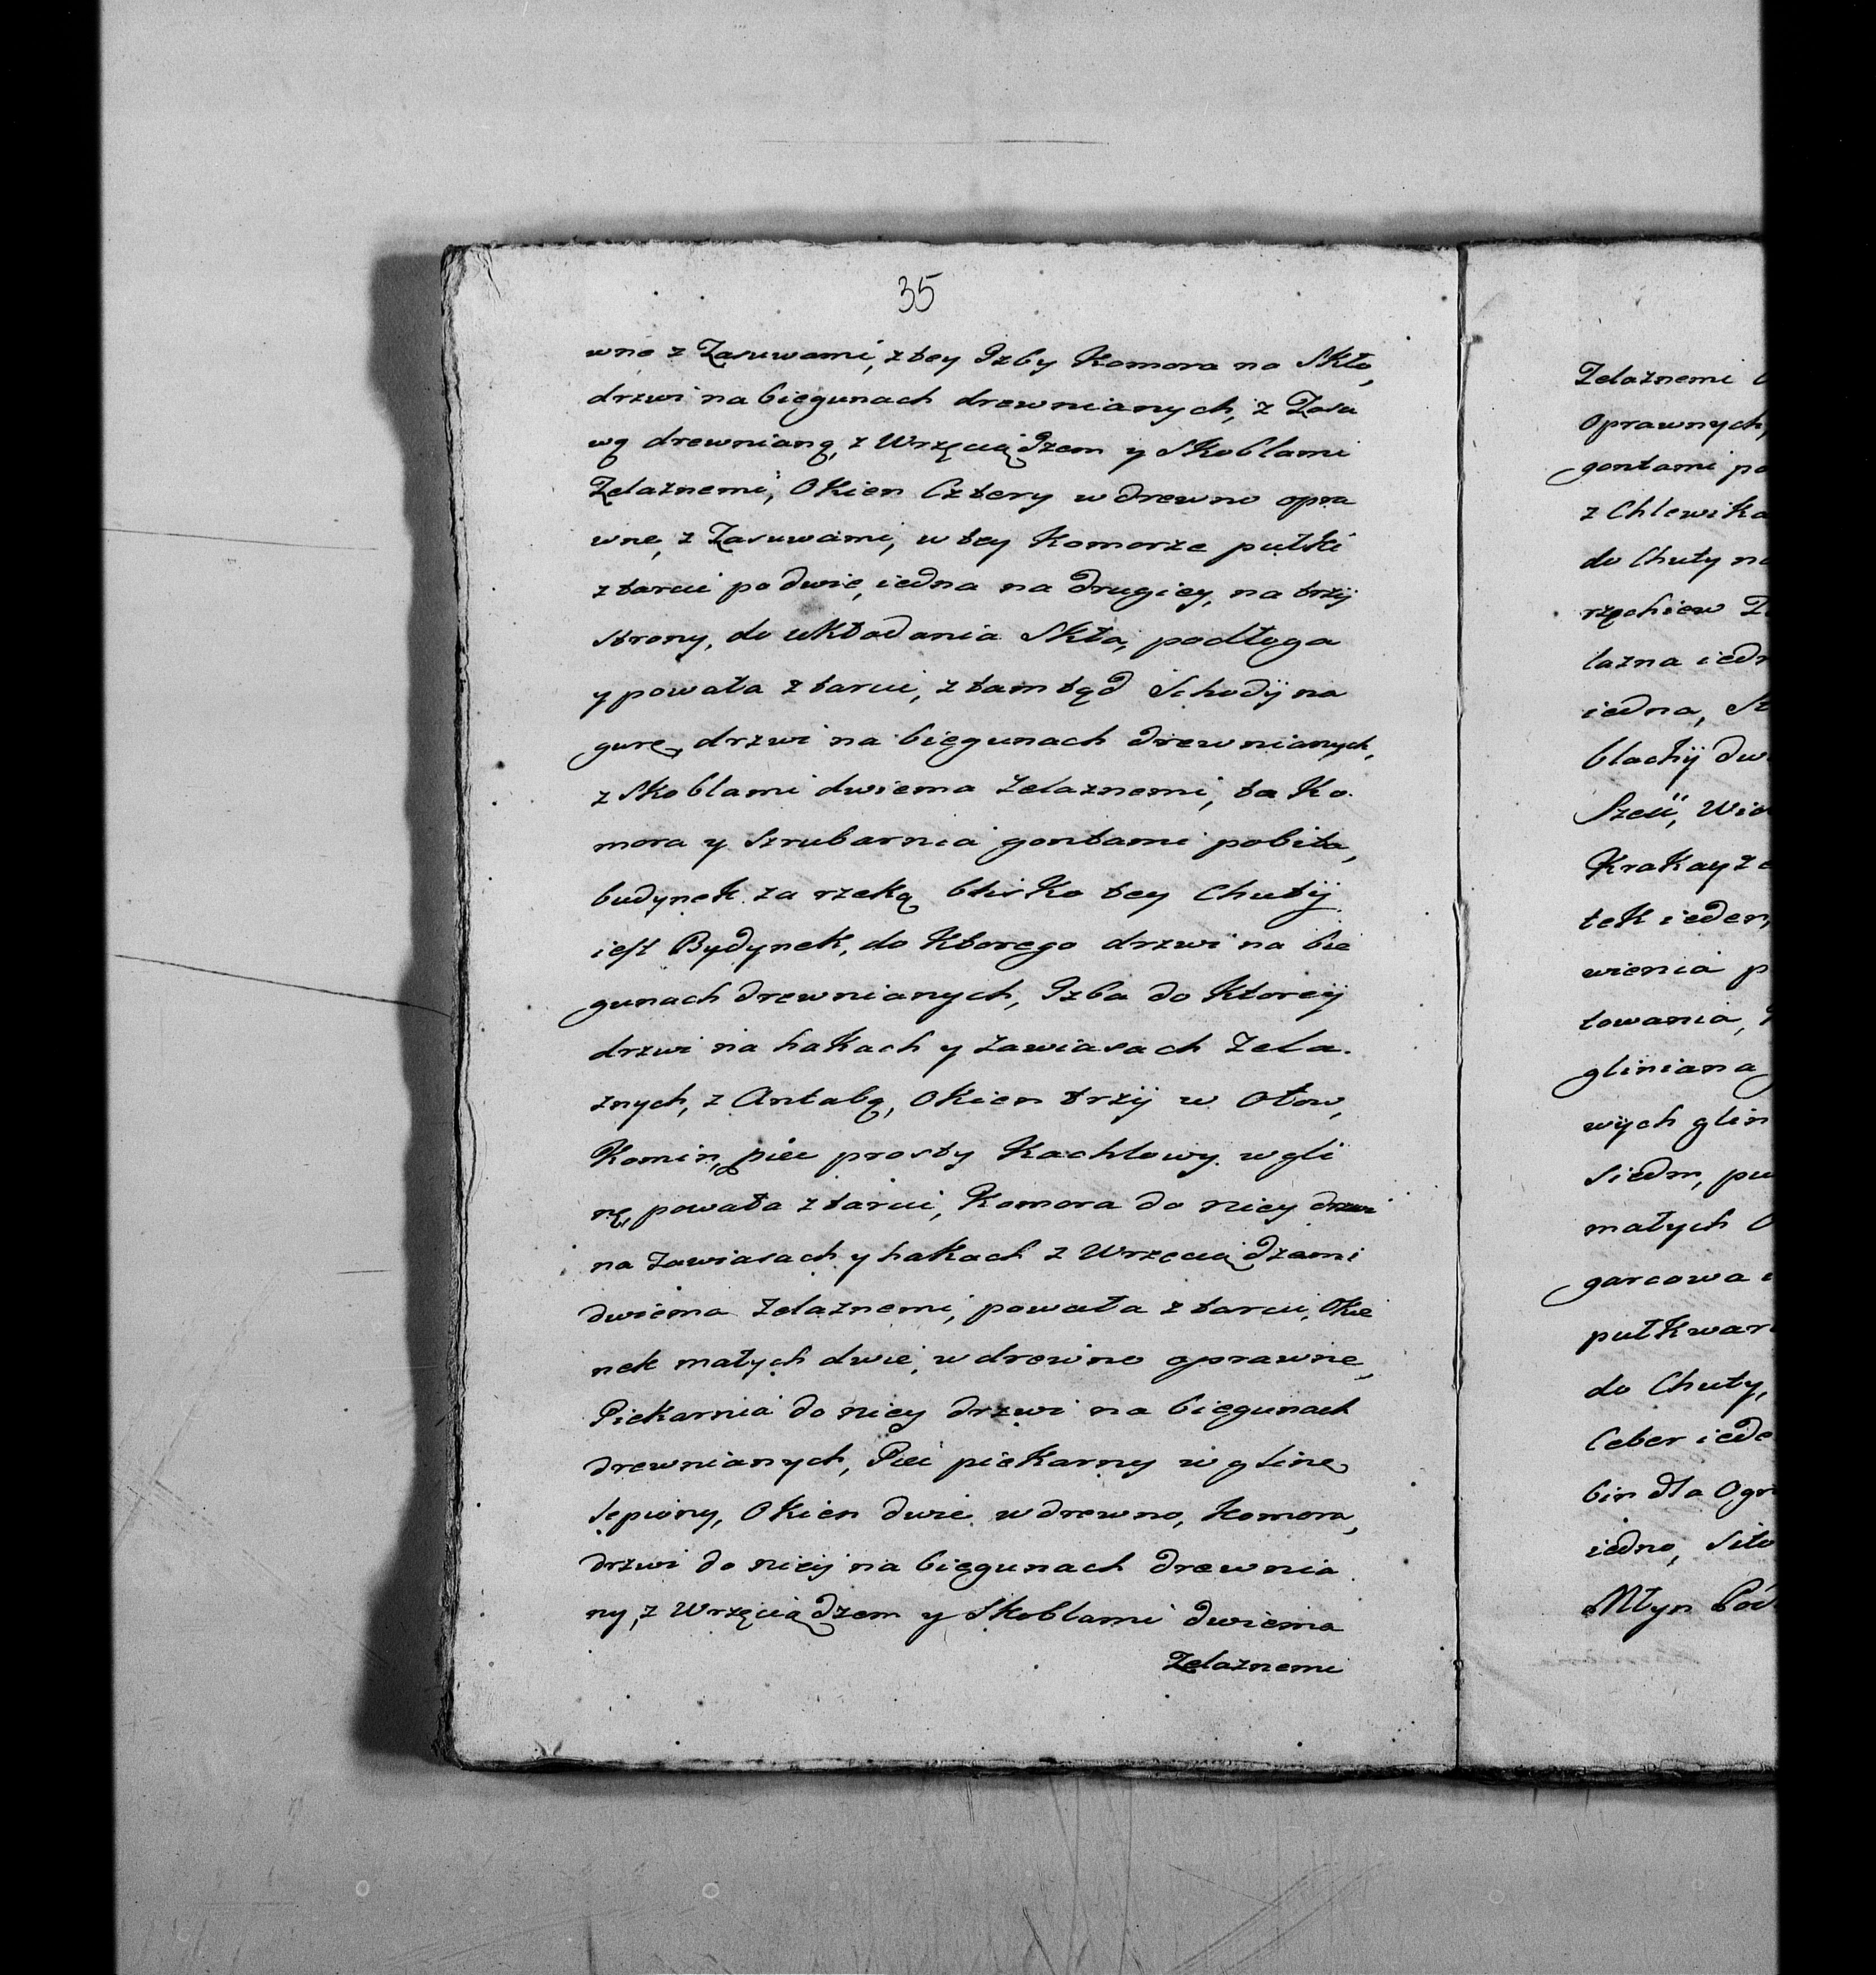 35
wne z Zasuwami, z tey Izby Komora na Skło,
drzwi na biegunach drewnianych, z Zasu
wą drewnianą, z Wrzęciądzem y Skoblami
Zelaznemi, Okien Cztery w drewno opra
wne, z Zasuwami, w tey Komorze pułki
z tarcic po dwie, iedna na drugiey, na trzÿ
strony, do układania Skła, podłoga
y powała z tarcic, z tamtąd SchodÿI na
gurę, drzwi na biegunach drewnianych,
z Skoblami dwiema Zelaznemi, ta Ko.
mora y Szrubarnia gontami pobita,
budynek za rzeką blisko tey Chutÿ
iest Bydynek, do Ktorego drzwi na bie
gunach drewnianych, Izba do Ktoreÿ
drzwi na hakach y zawiasach Zela.
znych, z Antabą, Okien trzÿ w Ołow,
Komin, piec prosty Kachlowy w gli
nę, powała z tarcic, Komora do niey drzwi
na Zawiasach y hakach z Wrzęciądzami
dwiema Zelaznemi, powała z tarcic, Okie
nek małych dwie, w drewno oprawne,
Piekarnia do niey drzwi na biegunach
drewnianych, Piec piekarny w glinę
lepiony, Okien dwie w drewno, Komora,
drzwi do nieÿ na biegunach drewnia
ny, z Wrzęciądzem y Skoblami dwiema
Zelaznemi
Zelaznemi
oprawnych,
gontami
z Chlewika
do Chuty
rzochiew
lazna
iedna,
blachÿ
Szesc,
Krakay
tek ieden,
wienia
towania,
gliniana
wych
siedm,
małych
garcowa
puł
do Chuty,
Ceber
dla
iedno, Sito
Młyn